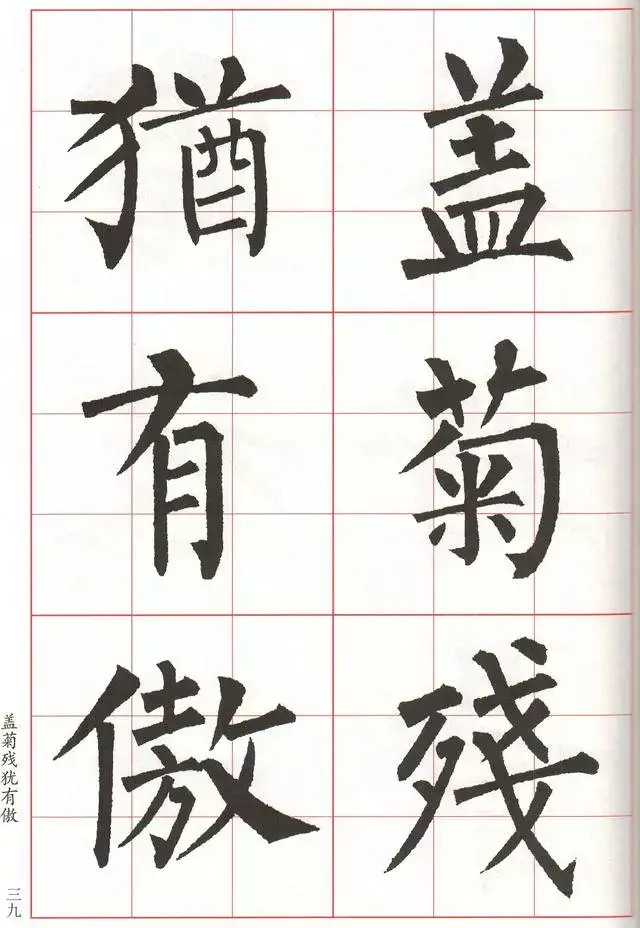 盖菊殘
猶有傲
盖菊残犹有傲
三九